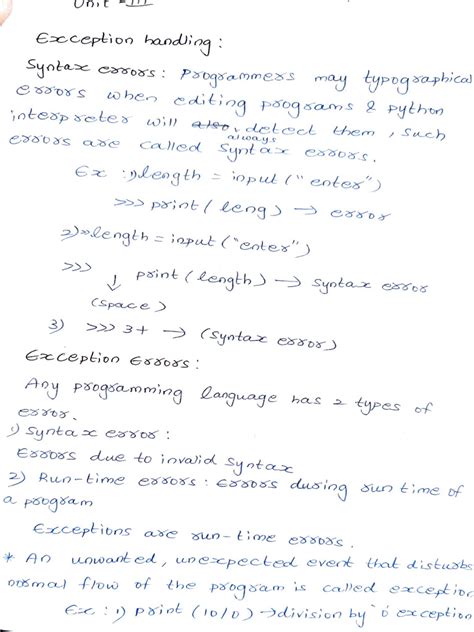 Unit - III
Exception handling :
Syntax errors : Programmers may typographical
errors when editing programs & python
interpreter will always detect them, such
errors are called Syntax errors.
Ex : 1) length = input ("enter")
>>> print ( leng ) → error
2) >> length = input ("enter")
>>>
↓ print (length) → Syntax error
(space)
3) >>> 3+ → (syntax error)
Exception Errors :
Any programming language has 2 types of
error.
1) Syntax error :
Errors due to invalid syntax
2) Run-time errors : Errors during run time of
a program
Exceptions are run-time errors.
* An unwanted, unexpected event that disturbs
normal flow of the program is called exception
Ex : 1) print (10/0) → division by '0' exception